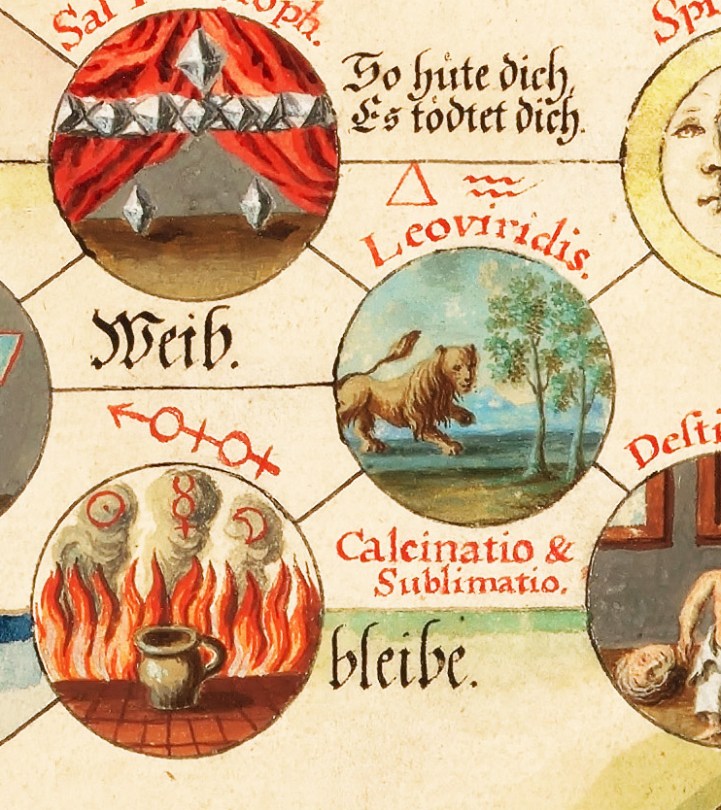 So hüte dich,
Es tödtet dich.
Leoviridis.
Weib.
Calcinatio &
Sublimatio.
bleibe.